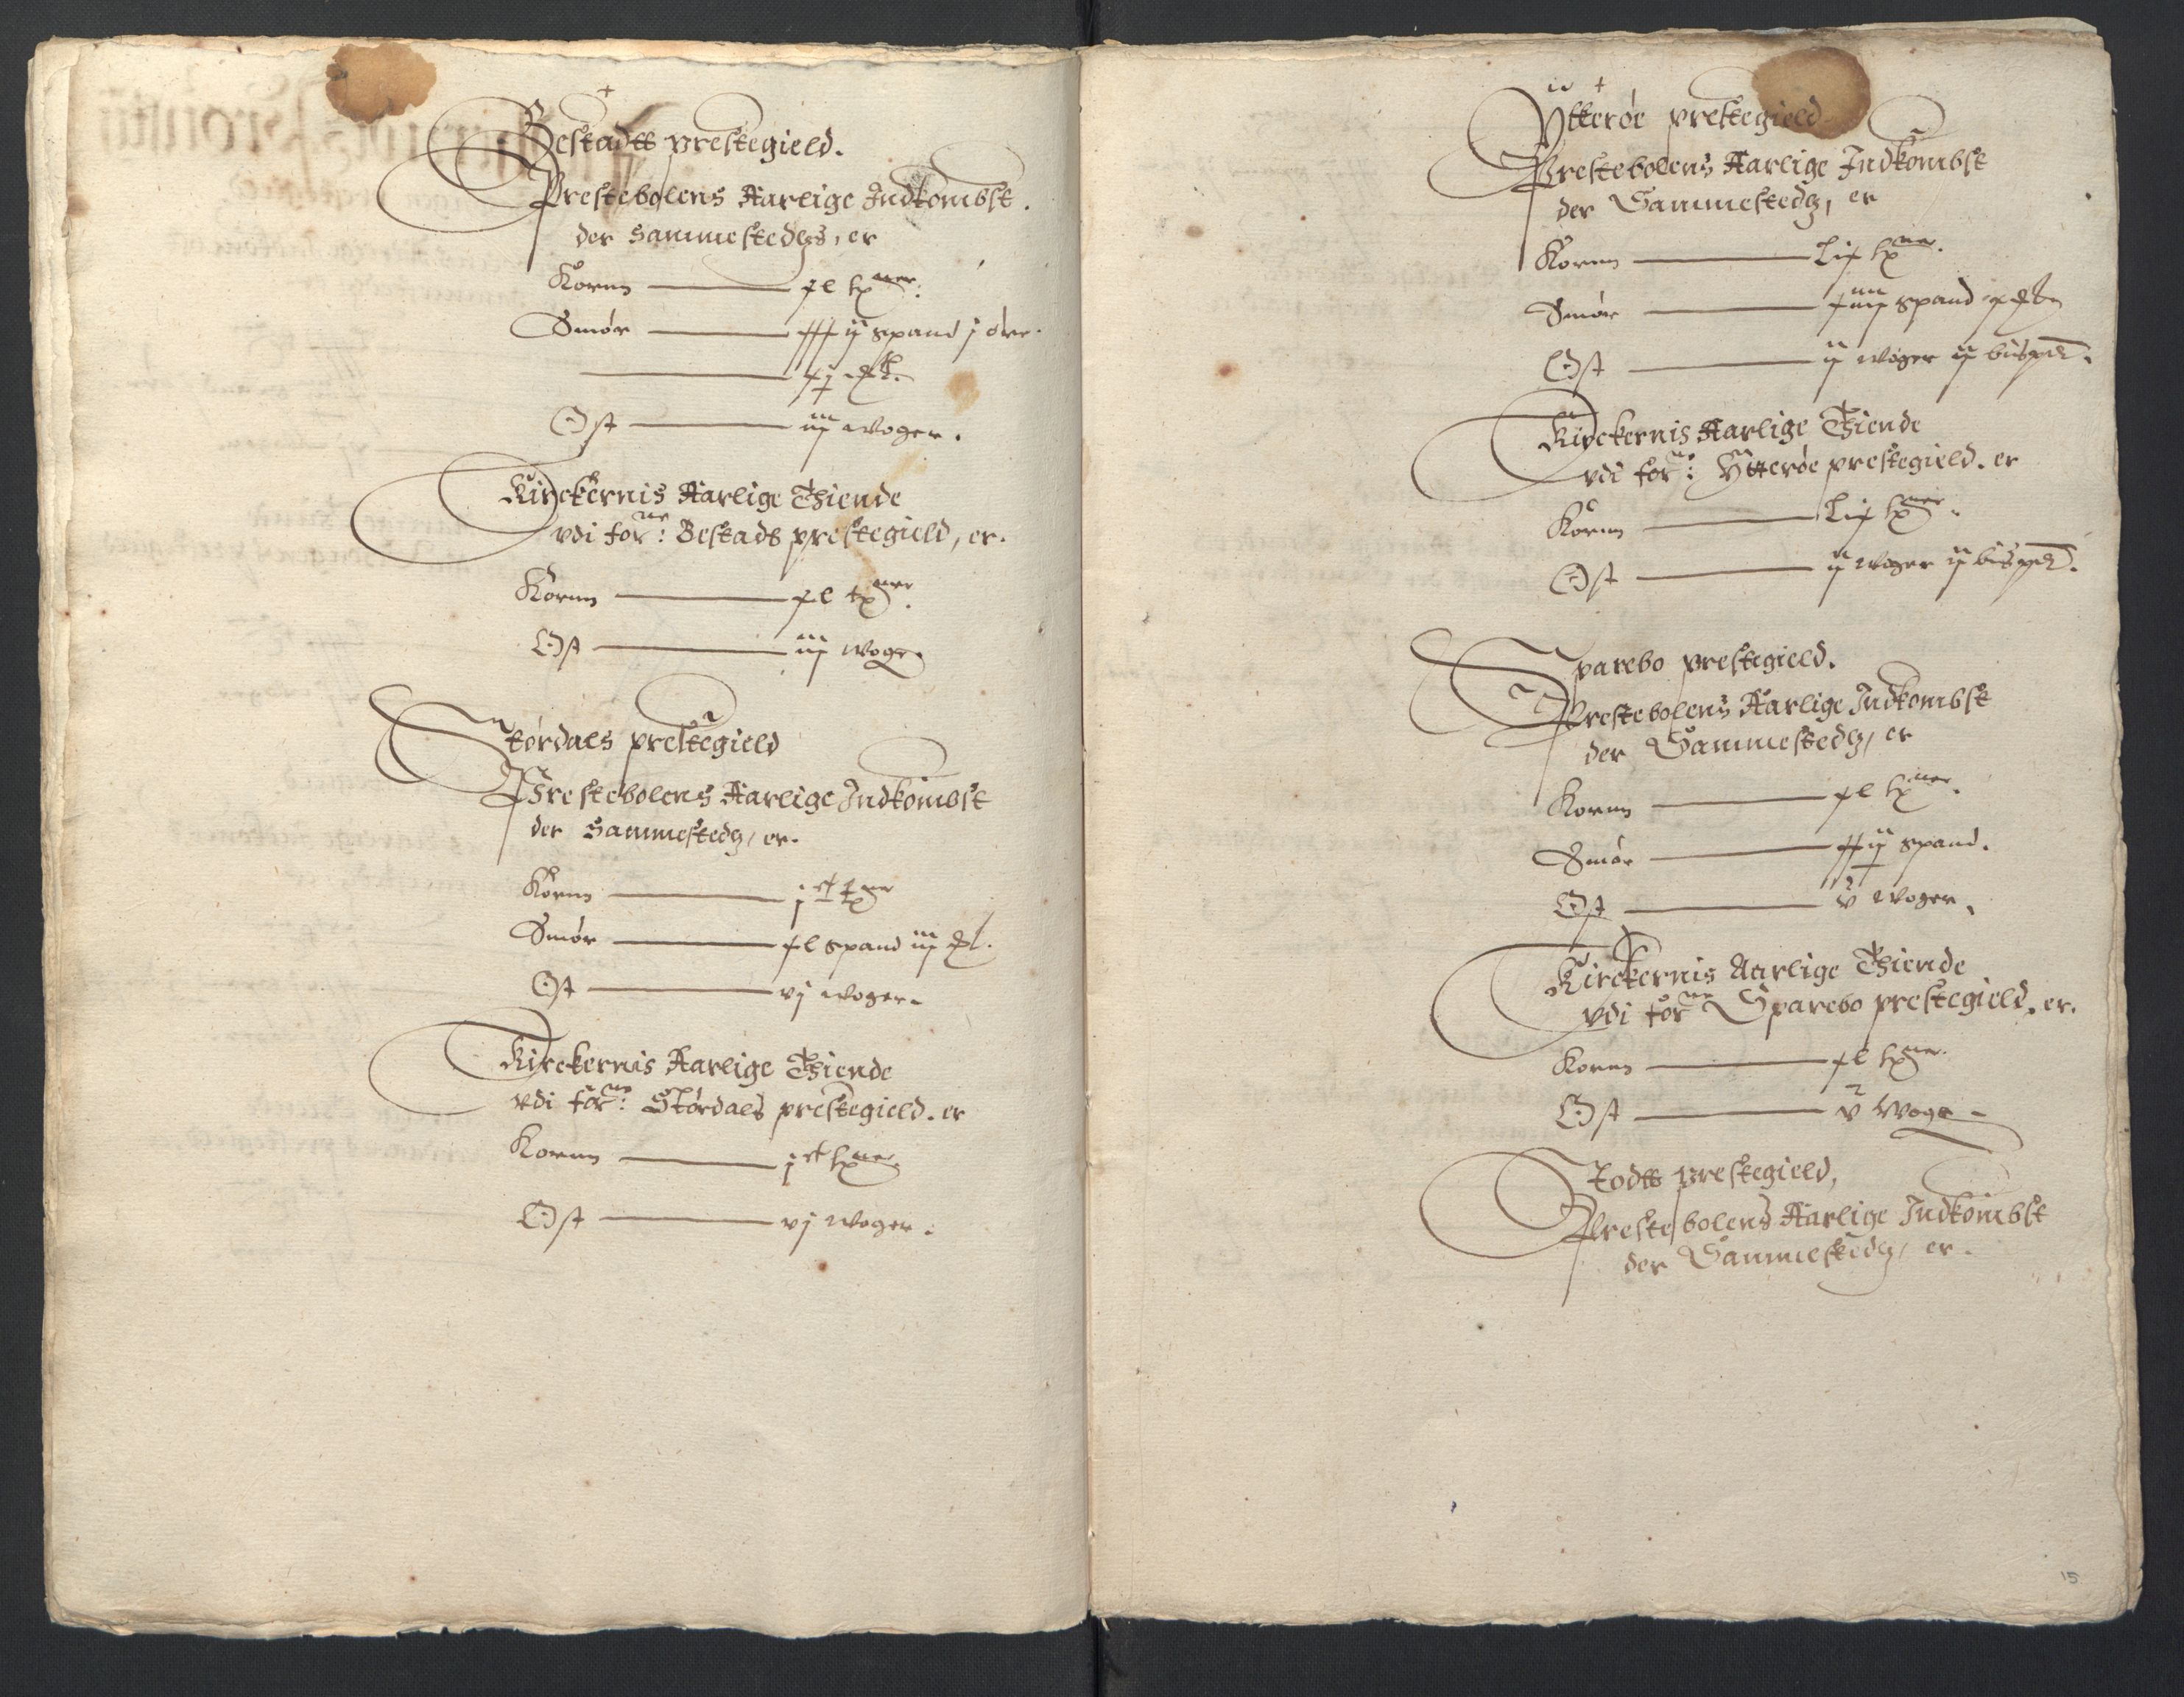 Bestadtt prestegield.
Prestebolens Aarlige Indkombst.
der sammestedtzs, er
Kornn — xl tn̅ner:
Smør — xxxij spand j øre.
Ost — iij woger.
Kirckernis Aarlige Thiende
vdi for^ne: Bestadt prestegield, er.
Kornn — xl tn̅ner.
Ost — iij woger
Størdals prestegield
Prestebolens Aarlige Indkombst
der sammestedtz, er.
Kornn — j^ct tn̅ner
Smør — xl spand iij
Ost — vj woger.
Kirckernis Aarlige Thiende
vdi for^ne: Størdals prestegield. er
Kornn — j^ct tn̅ner.
Ost — vj woger.
Ytterøe prestegield
Prestebolens Aarlige Indkombst
der Sammestedtz, er
Kornn — Lix tn̅ner.
Smør — spand
Ost — ij woger ij bispd.
Kirckernis Aarlige Thiende
vdi for^ne: Ytterøe prestegield. er
Kornn — Lix tn̅ner.
Ost — ij woger ij bispd.
Sparebo prestegield.
Prestebolens Aarlige Indkombst
der Sammestedtz, er
Kornn — xl tn̅ner.
Smør — xxij spand.
Ost — v woger.
Kirckernis Aarlige Thiende
vdi for^ne Sparebo prestegield. er.
Kornn — xl tn̅ner.
Ost — v Woge
Stodtt prestegield,
Prestebolens Aarlige Indkombst
der Sammestedtz, er.
15